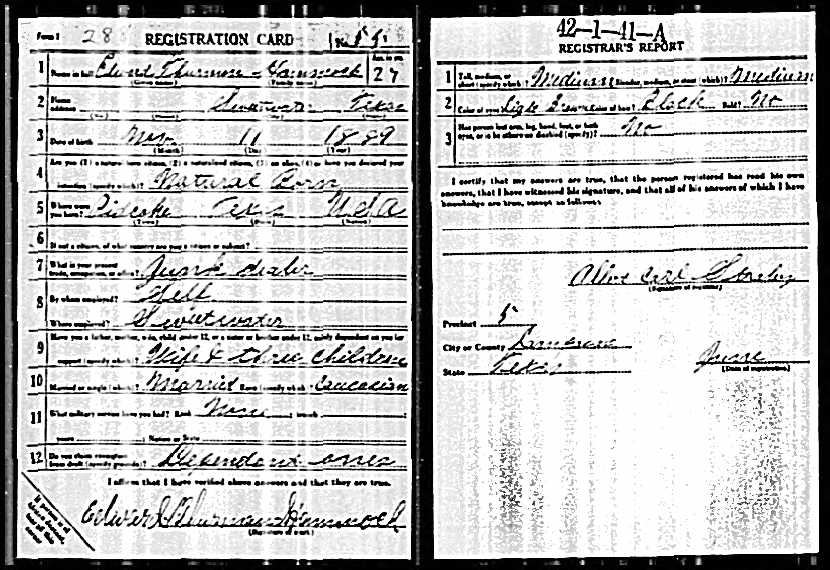 Form 1 28 REGISTRATION CARD No. 55
1 Name in full Edward Thurman Hammock Age, in yrs. 27
(Given name) (Family name)
2 Home address Sweetwater Texas
(No.) (Street) (City) (State)
3 Date of birth Nov 11 1889
(Month) (Day) (Year)
4 Are you (1) a natural-born citizen, (2) a naturalized citizen, (3) an alien, (4) or have you declared your
intention (specify which)? Natural Born
5 Where were you born? Texas USA
(Town) (State) (Nation)
6 If not a citizen, of what country are you a citizen or subject?
7 What is your present trade, occupation, or office? Junk dealer
8 By whom employed? Self
Where employed? Sweetwater
9 Have you a father, mother, wife, child under 12, or a sister or brother under 12, solely dependent on you for
support (specify which)? Wife & three Children
10 Married or single (which)? Married Race (specify which)? Caucasian
11 What military service have you had? Rank None ; branch
years ; Nation or State
12 Do you claim exemption from draft (specify grounds)? Dependant ones
I affirm that I have verified above answers and that they are true.
Edward Thurman Hammock
(Signature or mark)
42-1-41-A
REGISTRAR'S REPORT
1 Tall, medium, or short (specify which)? Medium Slender, medium, or stout (which)? Medium
2 Color of eyes Light Brown Color of hair Black Bald? No
3 Has person lost arm, leg, hand, foot, or both eyes, or is he otherwise disabled (specify)? No
I certify that my answers are true, that the person registered has read his own
answers, that I have witnessed his signature, and that all of his answers of which I have
knowledge are true, except as follows:
Carl
(Signature of registrar)
Precinct 5
City or County
State Texas June
(Date of registration)